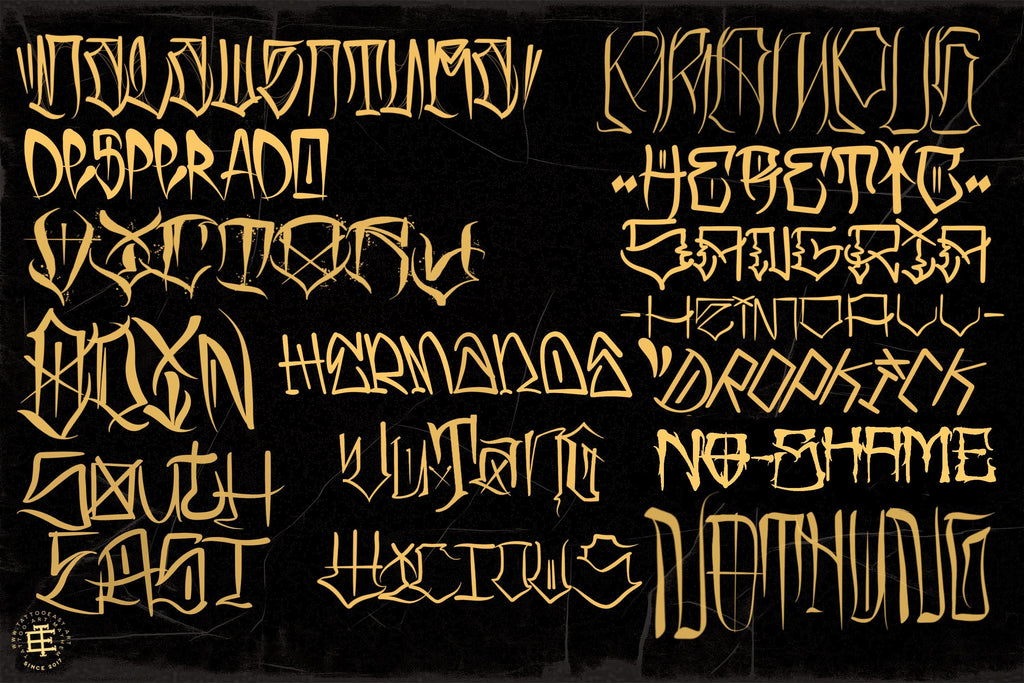 DESPERADO
VICTORY
ODIN
SOUTH
EAST
HERMANOS
WuTang
VICIOUS
"HERETIC"
SANGRIA
-HEIMDALL-
"DROPKICK
NO-SHAME
NOTHING
SINCE 2017